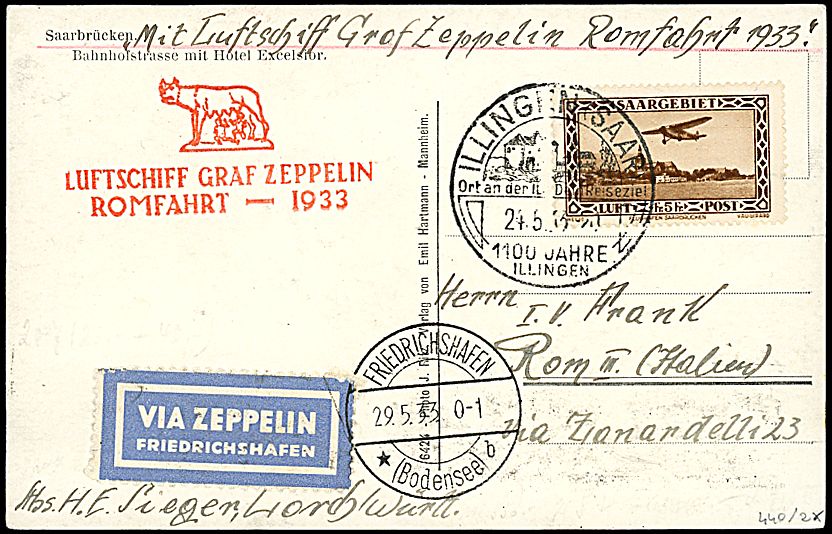 Saarbrücken.
Bahnhofstrasse mit Hotel Excelsior.
"Mit Luftschiff Graf Zeppelin Romfahrt 1933."
LUFTSCHIFF GRAF ZEPPELIN
ROMFAHRT — 1933
ILLINGEN-SAAR
Ort an der Ill Reiseziel
24.5.
1100 JAHRE
ILLINGEN
SAARGEBIET
LUFT 5 Fr. 5 POST
Verlag von Emil Hartmann - Mannheim.
Herrn
I. V. Frank
Rom III. (Italien)
via Zanardelli 23
FRIEDRICHSHAFEN
29.5.33. 0-1
(Bodensee) b
VIA ZEPPELIN
FRIEDRICHSHAFEN
Abs. H. E. Sieger, Lorch Württ.
440/2x